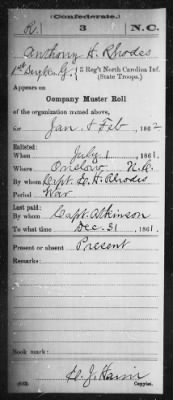 (Confederate.)
R. 3 N.C.
Anthony H. Rhodes
1st Sergt., Co. , 3 Reg't North Carolina Inf.
(State Troops.)
Appears on
Company Muster Roll
of the organization named above,
for Jan. & Feb, 1862
Enlisted:
When July 1, 1861.
Where Onslow N.C.
By whom Capt. H. Rhodes
Period War
Last paid:
By whom Capt. Atkinson
To what time Dec. 31, 1861.
Present or absent Present
Remarks:
Book mark:
Copyist.